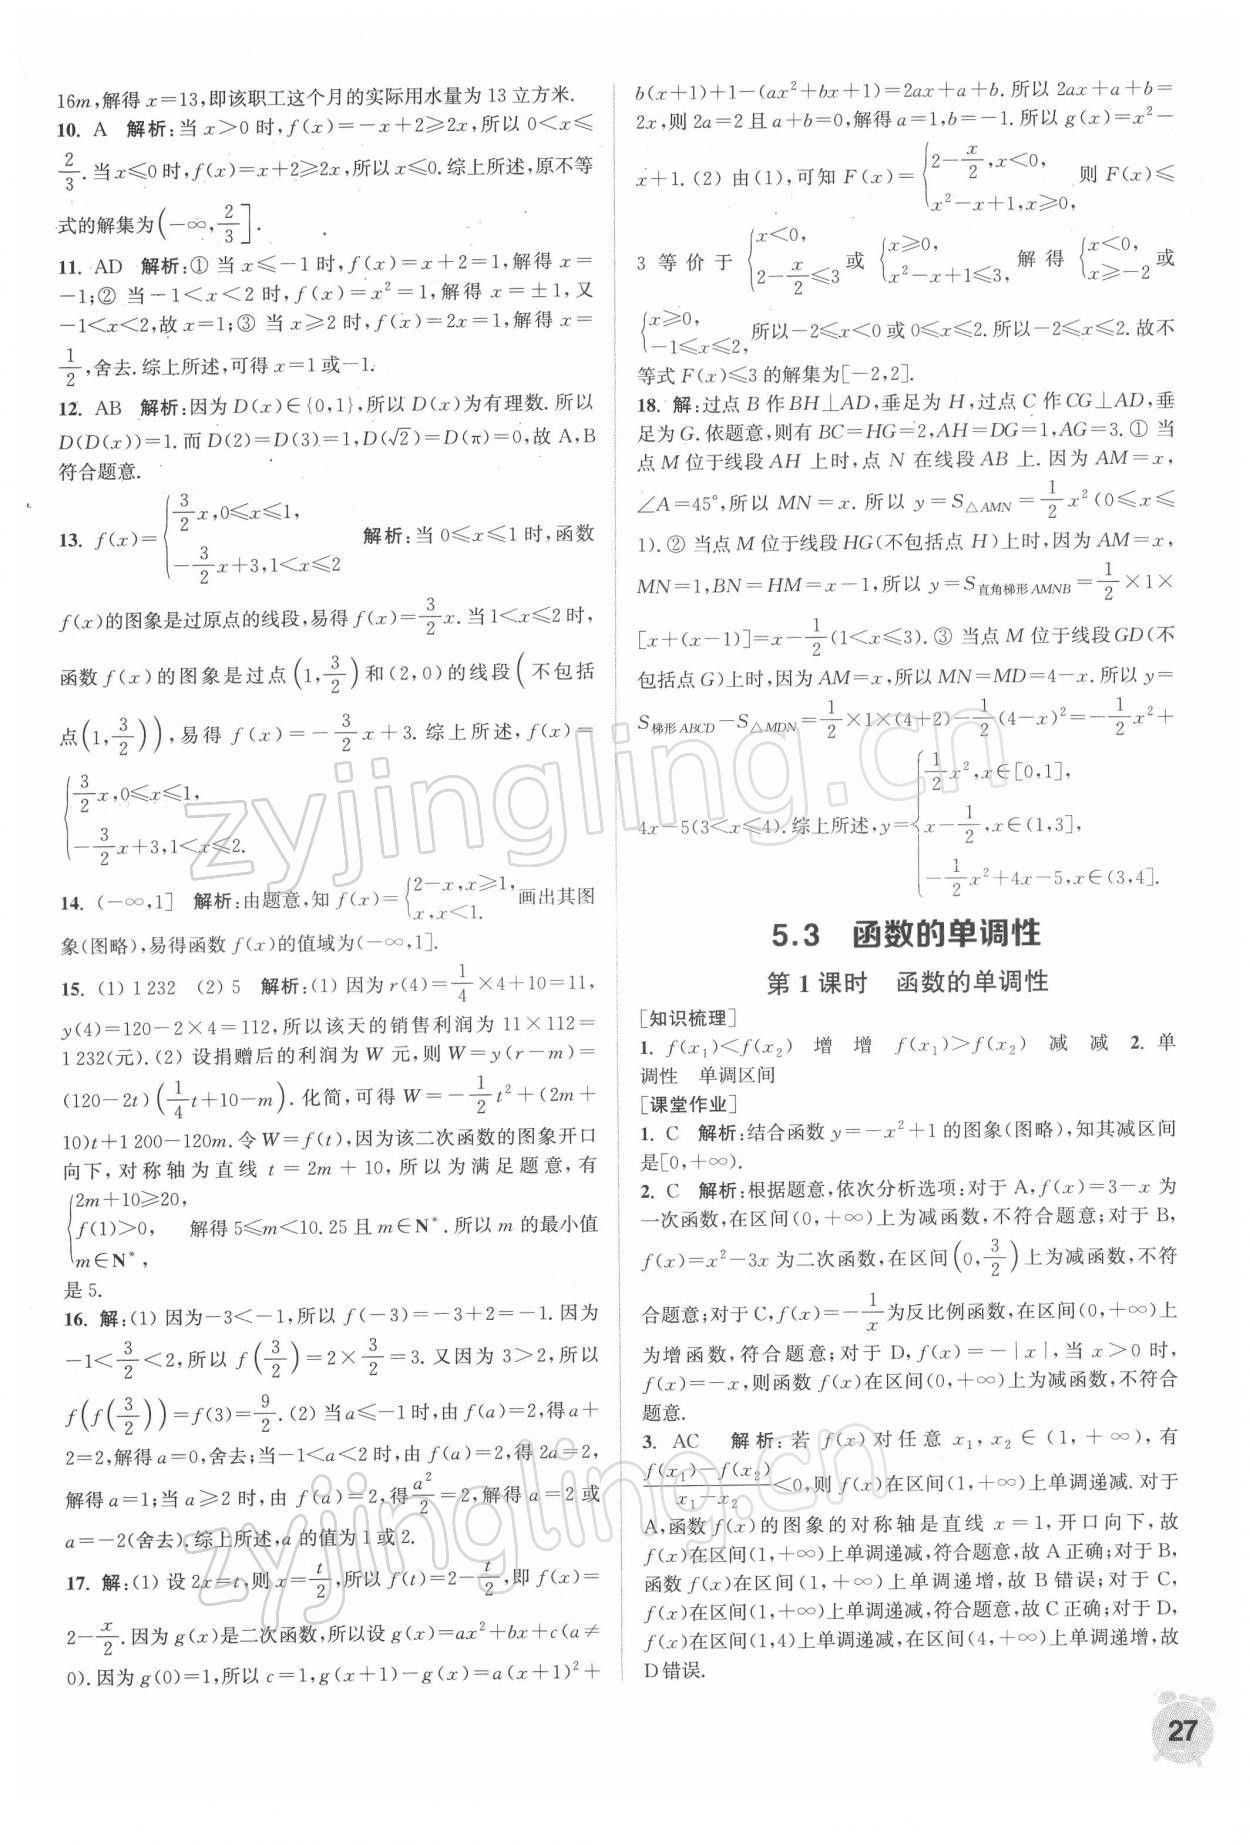 16m,解得 x=13,即该职工这个月的实际用水量为 13 立方米.
10. A 解析:当 x>0 时,f(x)=-x+2≥2x,所以 0<x≤
2/3.当x≤0 时,f(x)=x+2≥2x,所以 x≤0.综上所述,原不等
式的解集为(-∞,2/3].
11. AD 解析:① 当 x≤-1 时,f(x)=x+2=1,解得 x=
-1;② 当-1<x<2 时,f(x)=x²=1,解得 x=±1,又
-1<x<2,故 x=1;③ 当 x≥2 时,f(x)=2x=1,解得 x=
1/2,舍去.综上所述,可得 x=1 或-1.
12. AB 解析:因为 D(x)∈{0,1},所以 D(x)为有理数.所以
D(D(x))=1.而 D(2)=D(3)=1,D(√2)=D(π)=0,故 A,B
符合题意.
13. f(x)={3/2x,0≤x≤1, -3/2x+3,1<x≤2 解析:当 0≤x≤1 时,函数
f(x)的图象是过原点的线段,易得 f(x)=3/2x.当 1<x≤2 时,
函数 f(x)的图象是过点(1,3/2)和(2,0)的线段(不包括
点(1,3/2)),易得 f(x)=-3/2x+3.综上所述,f(x)=
{3/2x,0≤x≤1,
-3/2x+3,1<x≤2.
14. (-∞,1] 解析:由题意,知 f(x)={2-x,x≥1, x,x<1. 画出其图
象(图略),易得函数 f(x)的值域为(-∞,1].
15. (1) 1 232 (2) 5 解析:(1) 因为 r(4)=1/4×4+10=11,
y(4)=120-2×4=112,所以该天的销售利润为 11×112=
1 232(元).(2) 设捐赠后的利润为 W 元,则 W=y(r-m)=
(120-2t)(1/4t+10-m).化简,可得 W=-1/2t²+(2m+
10)t+1 200-120m.令 W=f(t),因为该二次函数的图象开口
向下,对称轴为直线 t=2m+10,所以为满足题意,有
{2m+10≥20,
f(1)>0, 解得 5≤m<10.25 且 m∈N*.所以 m 的最小值
m∈N*,
是 5.
16. 解:(1) 因为-3<-1,所以 f(-3)=-3+2=-1.因为
-1<3/2<2,所以 f(3/2)=2×3/2=3.又因为 3>2,所以
f(f(3/2))=f(3)=9/2.(2) 当a≤-1 时,由 f(a)=2,得 a+
2=2,解得 a=0,舍去;当-1<a<2 时,由 f(a)=2,得 2a=2,
解得 a=1;当 a≥2 时,由 f(a)=2,得a²/2=2,解得 a=2 或
a=-2(舍去).综上所述,a 的值为 1 或 2.
17. 解:(1) 设 2x=t,则 x=t/2,所以 f(t)=2-t/2,即 f(x)=
2-x/2.因为 g(x)是二次函数,所以设 g(x)=ax²+bx+c(a≠
0).因为 g(0)=1,所以 c=1,g(x+1)-g(x)=a(x+1)²+
b(x+1)+1-(ax²+bx+1)=2ax+a+b.所以 2ax+a+b=
2x,则 2a=2 且 a+b=0,解得 a=1,b=-1.所以 g(x)=x²-
x+1.(2) 由(1),可知 F(x)={2-x/2,x<0, x²-x+1,x≥0, 则 F(x)≤
3 等价于{x<0, 2-x/2≤3 或{x≥0, x²-x+1≤3, 解得{x<0, x≥-2 或
{x≥0, -1≤x≤2, 所以-2≤x<0 或 0≤x≤2.所以-2≤x≤2.故不
等式 F(x)≤3 的解集为[-2,2].
18. 解:过点 B 作 BH⊥AD,垂足为 H,过点 C 作 CG⊥AD,垂
足为 G.依题意,则有 BC=HG=2,AH=DG=1,AG=3.① 当
点 M 位于线段 AH 上时,点 N 在线段 AB 上.因为 AM=x,
∠A=45°,所以 MN=x.所以 y=S△AMN=1/2x²(0≤x≤
1).② 当点 M 位于线段 HG(不包括点 H)上时,因为 AM=x,
MN=1,BN=HM=x-1,所以 y=S直角梯形AMNB=1/2×1×
[x+(x-1)]=x-1/2(1<x≤3).③ 当点 M 位于线段GD(不
包括点 G)上时,因为 AM=x,所以 MN=MD=4-x.所以 y=
S梯形ABCD-S△MDN=1/2×1×(4+2)-1/2(4-x)²=-1/2x²+
4x-5(3<x≤4).综上所述,y={1/2x²,x∈[0,1], x-1/2,x∈(1,3], -1/2x²+4x-5,x∈(3,4].
5.3 函数的单调性
第 1 课时 函数的单调性
[知识梳理]
1. f(x₁)<f(x₂) 增 增 f(x₁)>f(x₂) 减 减 2. 单
调性 单调区间
[课堂作业]
1. C 解析:结合函数 y=-x²+1 的图象(图略),知其减区间
是[0,+∞).
2. C 解析:根据题意,依次分析选项:对于 A,f(x)=3-x 为
一次函数,在区间(0,+∞)上为减函数,不符合题意;对于 B,
f(x)=x²-3x 为二次函数,在区间(0,3/2)上为减函数,不符
合题意;对于 C,f(x)=-1/x为反比例函数,在区间(0,+∞)上
为增函数,符合题意;对于 D,f(x)=-|x|,当 x>0 时,
f(x)=-x,则函数 f(x)在区间(0,+∞)上为减函数,不符合
题意.
3. AC 解析:若 f(x)对任意 x₁,x₂∈(1,+∞),有
f(x₁)-f(x₂)/x₁-x₂<0,则 f(x)在区间(1,+∞)上单调递减.对于
A,函数 f(x)的图象的对称轴是直线 x=1,开口向下,故
f(x)在区间(1,+∞)上单调递减,符合题意,故 A 正确;对于 B,
函数 f(x)在区间(1,+∞)上单调递增,故 B 错误;对于 C,
f(x)在区间(1,+∞)上单调递减,符合题意,故 C 正确;对于 D,
f(x)在区间(1,4)上单调递减,在区间(4,+∞)上单调递增,故
D 错误.
27
zyjingling.cn
zyjingling.cn